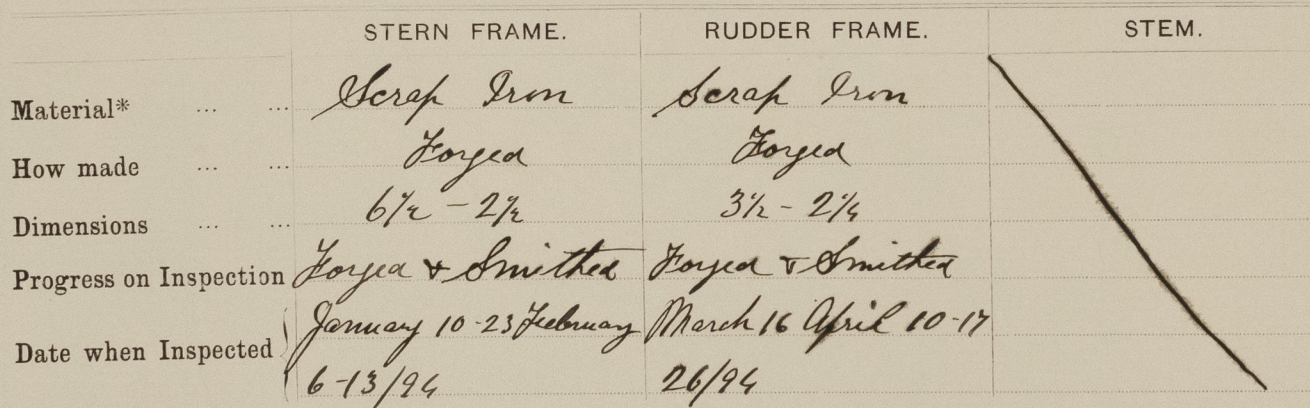 STERN FRAME. RUDDER FRAME. STEM.
Material* ... ... Scrap Iron Scrap Iron
How made ... ... Forged Forged
Dimensions ... ... 6 1/2 - 2 1/2 3 1/2 - 2 1/4
Progress on Inspection Forged & Smithed Forged & Smithed
Date when Inspected January 10-23 February March 16 April 10-17
6-13/94 26/94